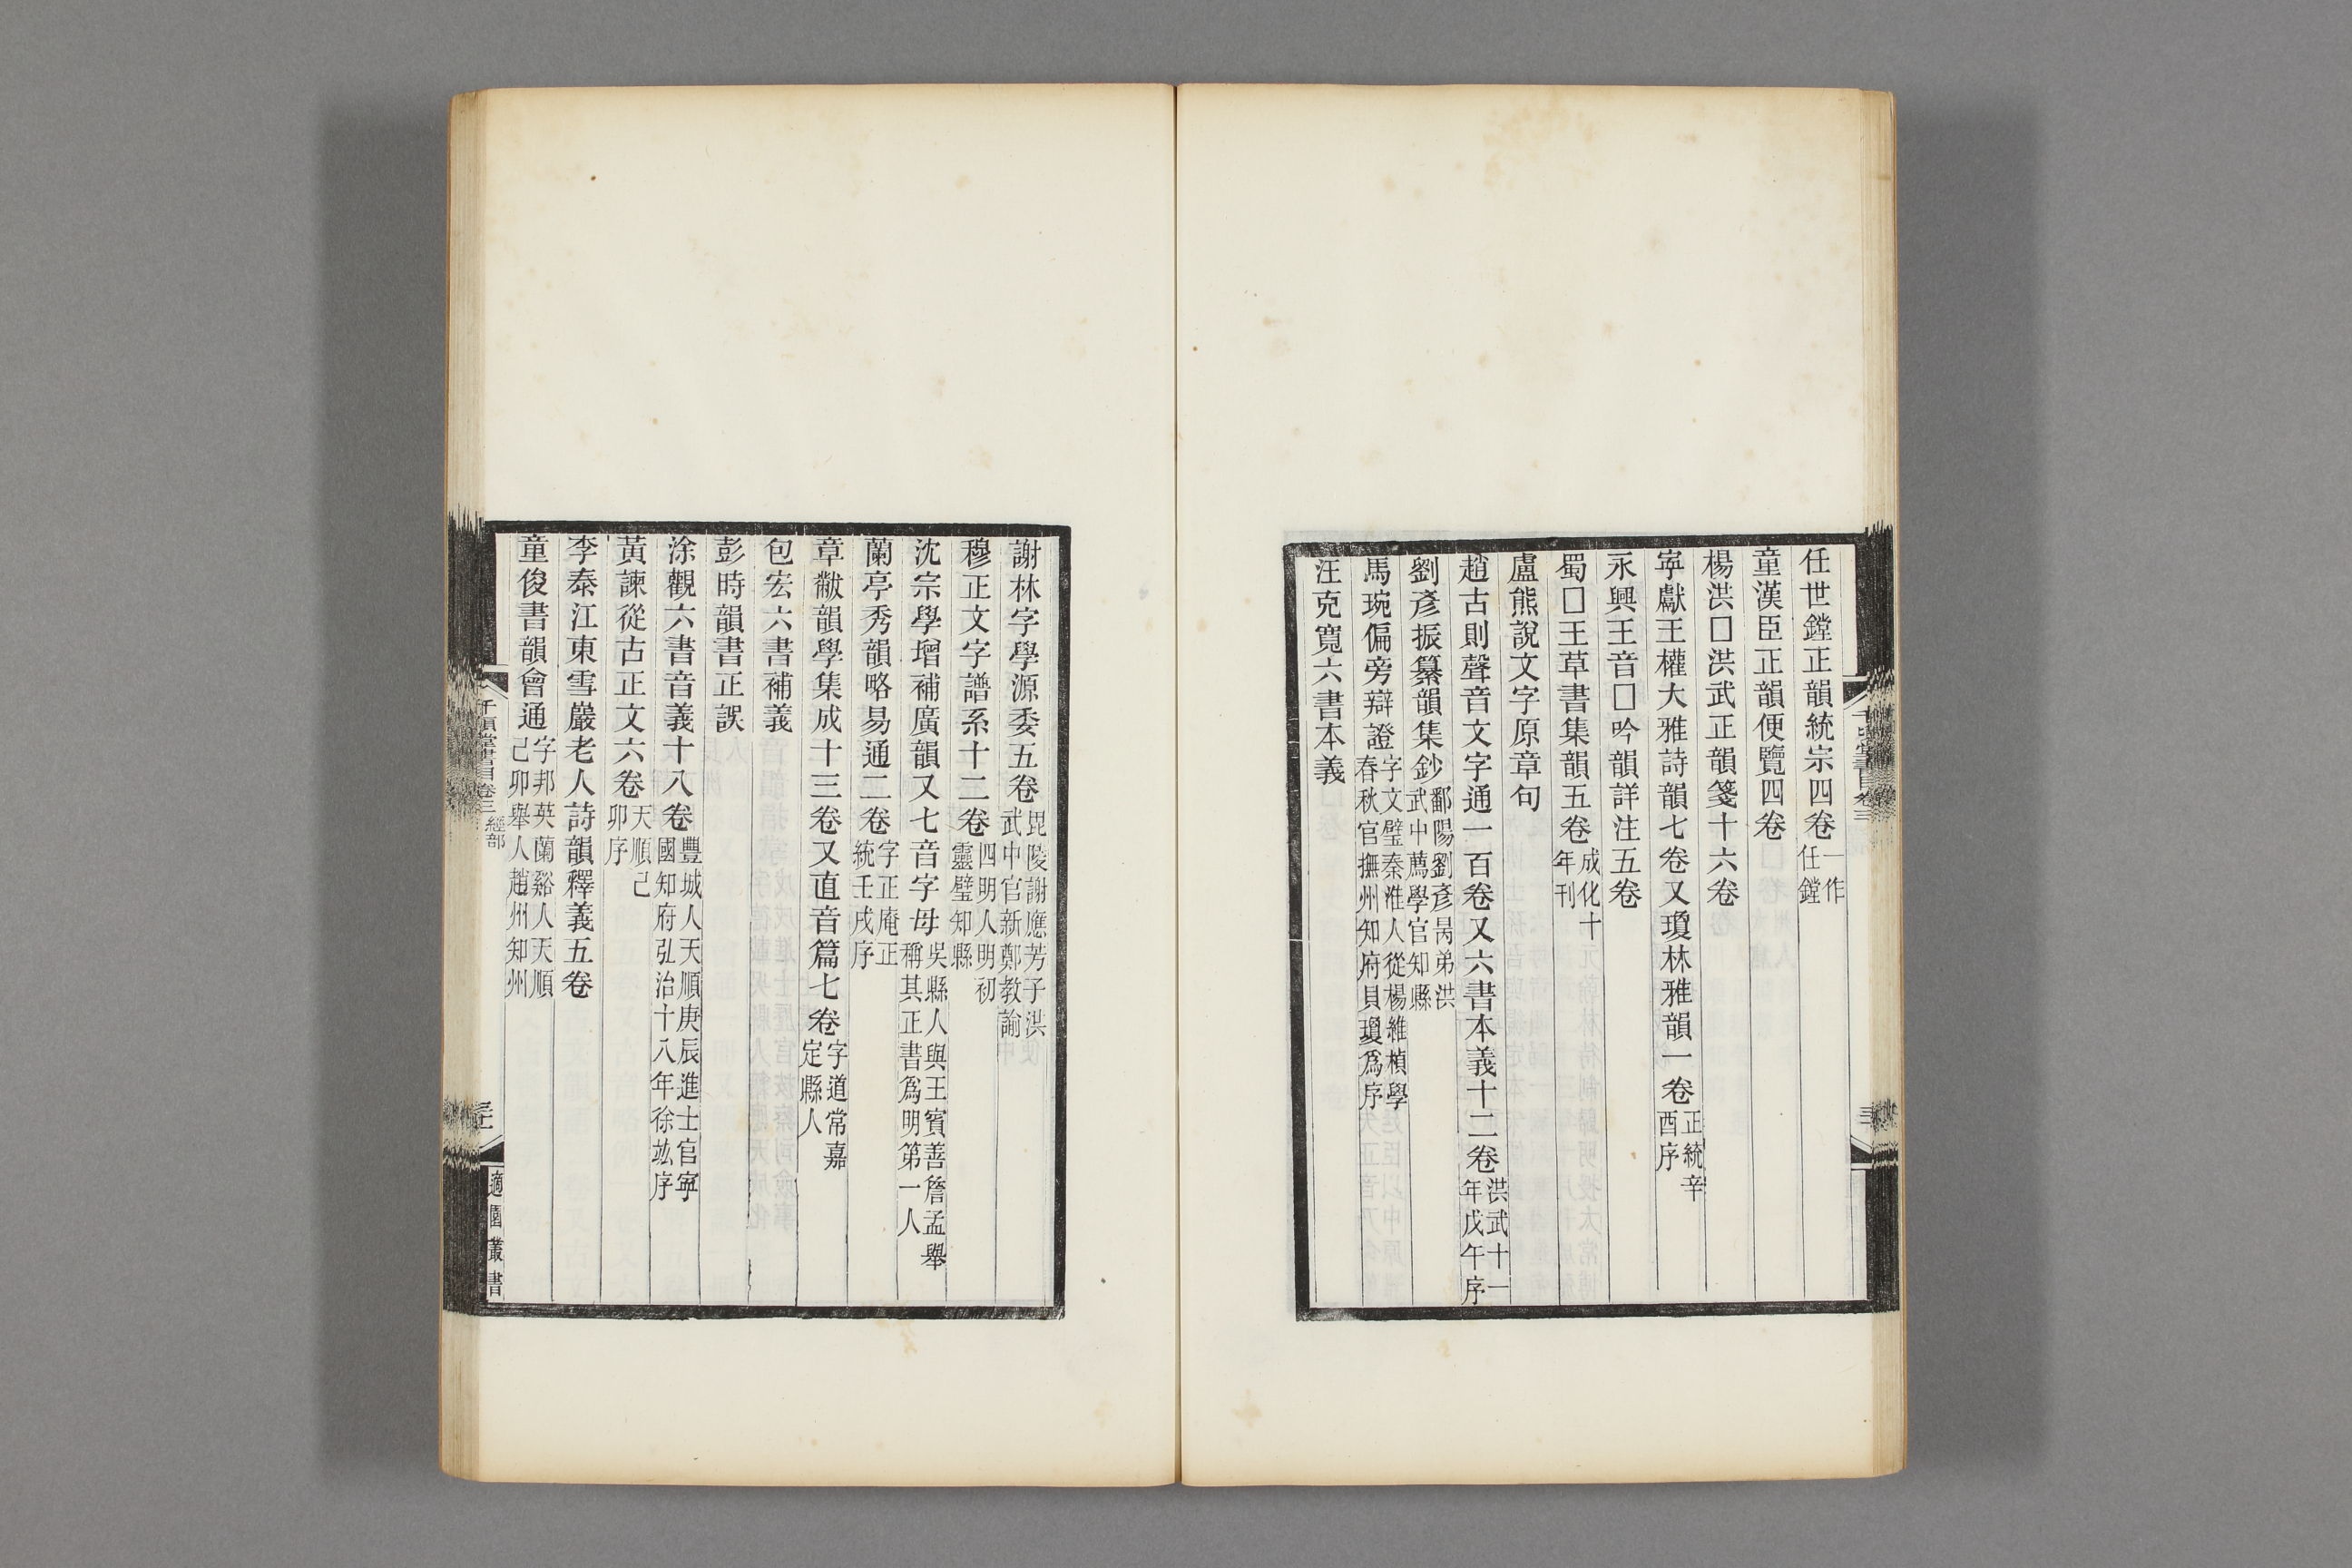 任世鏜正韻統宗四卷一作任鏜
童漢臣正韻便覽四卷
楊洪□洪武正韻箋十六卷
寕獻王權大雅詩韻七卷又瓊林雅韻一卷正統辛酉序
永興王音□吟韻詳注五卷
蜀□王草書集韻五卷成化十年刊
盧熊說文字原章句
趙古則聲音文字通一百卷又六書本義十二卷洪武十一年戊午序
劉彥振纂韻集鈔鄱陽劉彥昺弟洪武中薦學官知縣
馬琬偏旁辯證字文璧秦淮人從楊維楨學春秋官撫州知府貝瓊爲序
汪克寬六書本義
謝林字學源委五卷毘陵謝應芳子洪武中官新鄭教諭
穆正文字譜系十二卷四明人明初靈璧知縣
沈宗學增補廣韻又七音字母吳縣人與王賓善詹孟舉稱其正書爲明第一人
蘭亭秀韻略易通二卷字正庵正統壬戌序
章黻韻學集成十三卷又直音篇七卷字道常嘉定縣人
包宏六書補義
彭時韻書正誤
涂觀六書音義十八卷豐城人天順庚辰進士官寕國知府弘治十八年徐竑序
黃諫從古正文六卷天順己卯序
李泰江東雪巖老人詩韻釋義五卷
童俊書韻會通字邦英蘭谿人天順己卯舉人趙州知州
千頃堂書目卷三 經部
適園叢書